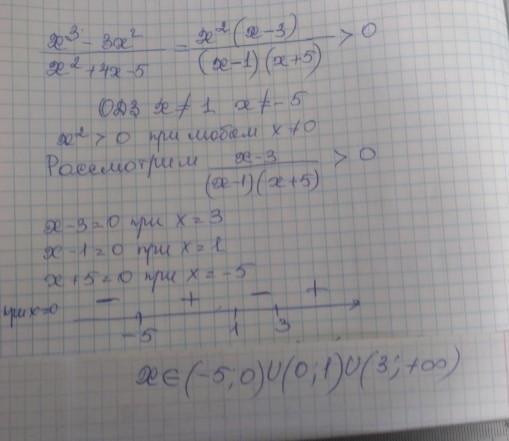 x³ - 3x² / x² + 4x - 5 = x²(x-3) / (x-1)(x+5) > 0
ОДЗ x ≠ 1 x ≠ -5
x² > 0 при любом x ≠ 0
Рассмотрим x-3 / (x-1)(x+5) > 0
x-3=0 при x=3
x-1=0 при x=1
x+5=0 при x=-5
при x=0 - + - +
-5 1 3
x∈(-5;0)∪(0;1)∪(3;+∞)